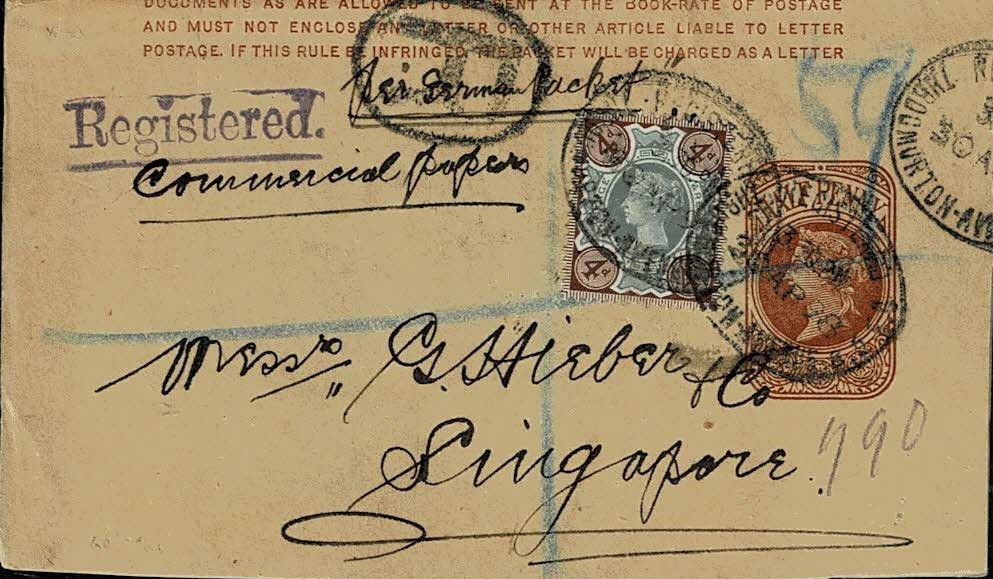 DOCUMENTS AS ARE ALLOWED TO BE SENT AT THE BOOK-RATE OF POSTAGE
AND MUST NOT ENCLOSE ANY LETTER OR OTHER ARTICLE LIABLE TO LETTER
POSTAGE. IF THIS RULE BE INFRINGED, THE PACKET WILL BE CHARGED AS A LETTER
R
per German Packet"
Registered.
Commercial papers
59
4d 4d
4d 4d
HALFPENNY
THROGMORTON-AV
30 A
Messrs G. Hieber & Co
Singapore.
790